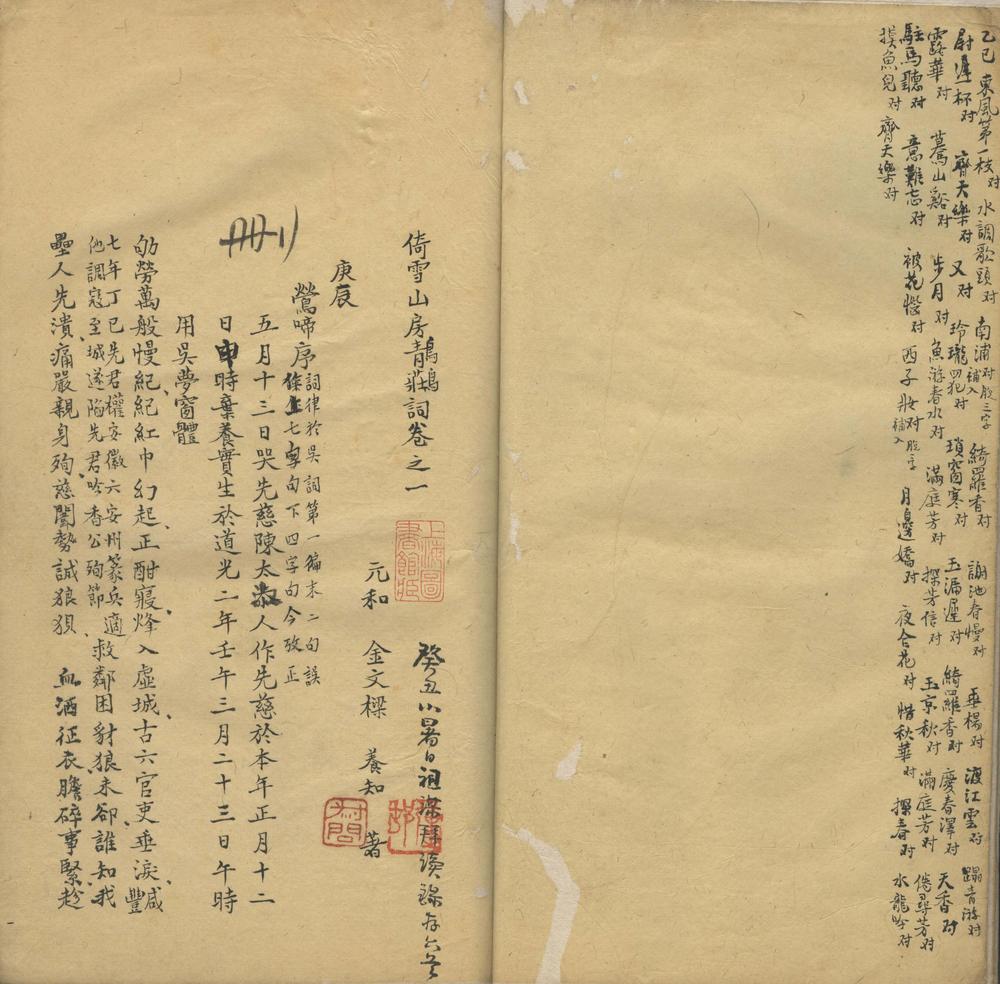 乙巳 東風第一枝对 水調歌頭对 南浦对脫三字補入 綺羅香对 謝池春慢对 垂楊对 渡江雲对 踏青游对
尉遲杯对 齊天樂对 又对 玲瓏四犯对 瑣窗寒对 玉漏遲对 綺羅香对 慶春澤对 天香对
露華对 驀山谿对 步月对 魚游春水对 滿庭芳对 探芳信对 玉京秋对 滿庭芳对 倦尋芳对
駐馬聽对 意難忘对 被花惱对 西子妝对脫字補入 月邊嬌对 夜合花对 惜秋華对 探春对 水龍吟对
摸魚兒对 齊天樂对
癸丑小暑日祖拜讀錄存六首
倚雪山房青鶼鶼詞卷之一
上海圖書館藏
元和 金文樑 養知 著
庚辰
鶯啼序詞律於吳詞第一徧末二句誤作上七字句下四字句今改正
五月十三日哭先慈陳太淑人作先慈於本年正月十二
日申時棄養實生於道光二年壬午三月二十三日午時
刪
用吳夢窗體
劬勞萬般慢紀紀紅巾幻起正酣寢烽入虛城古六官吏垂淚咸豐
七年丁巳先君權安徽六安州篆兵適他調寇至城遂陷先君吟香公殉節救鄰困豺狼未卻誰知我
壘人先潰痛嚴親身殉慈闈勢誠狼狽 血洒征衣膽碎事緊趁